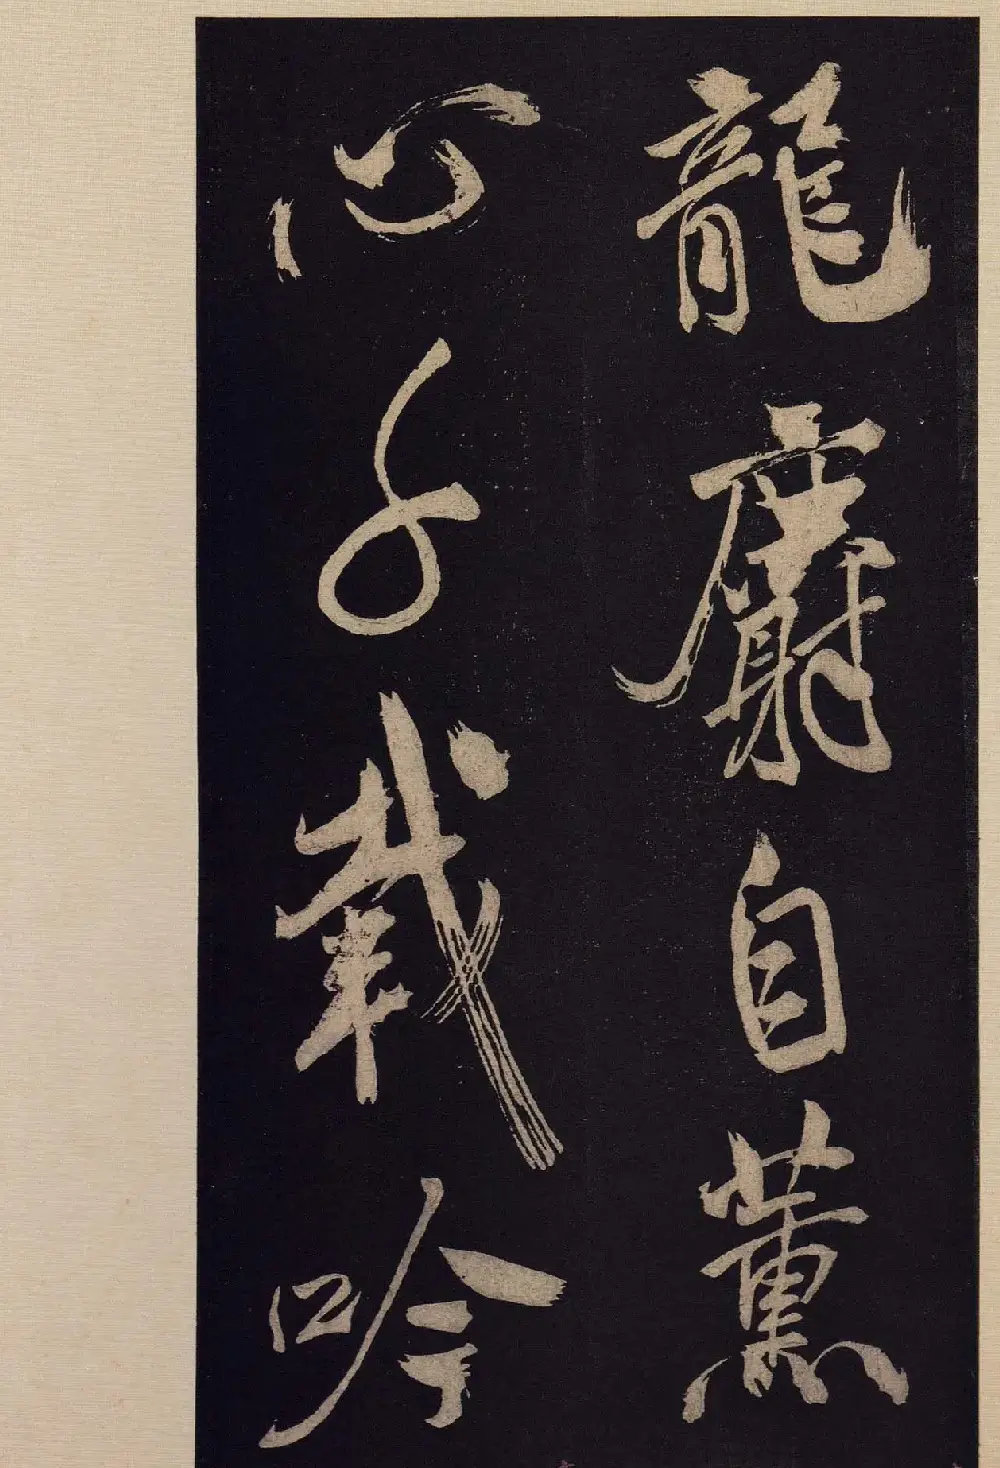 龍麝自薰
心千載吟